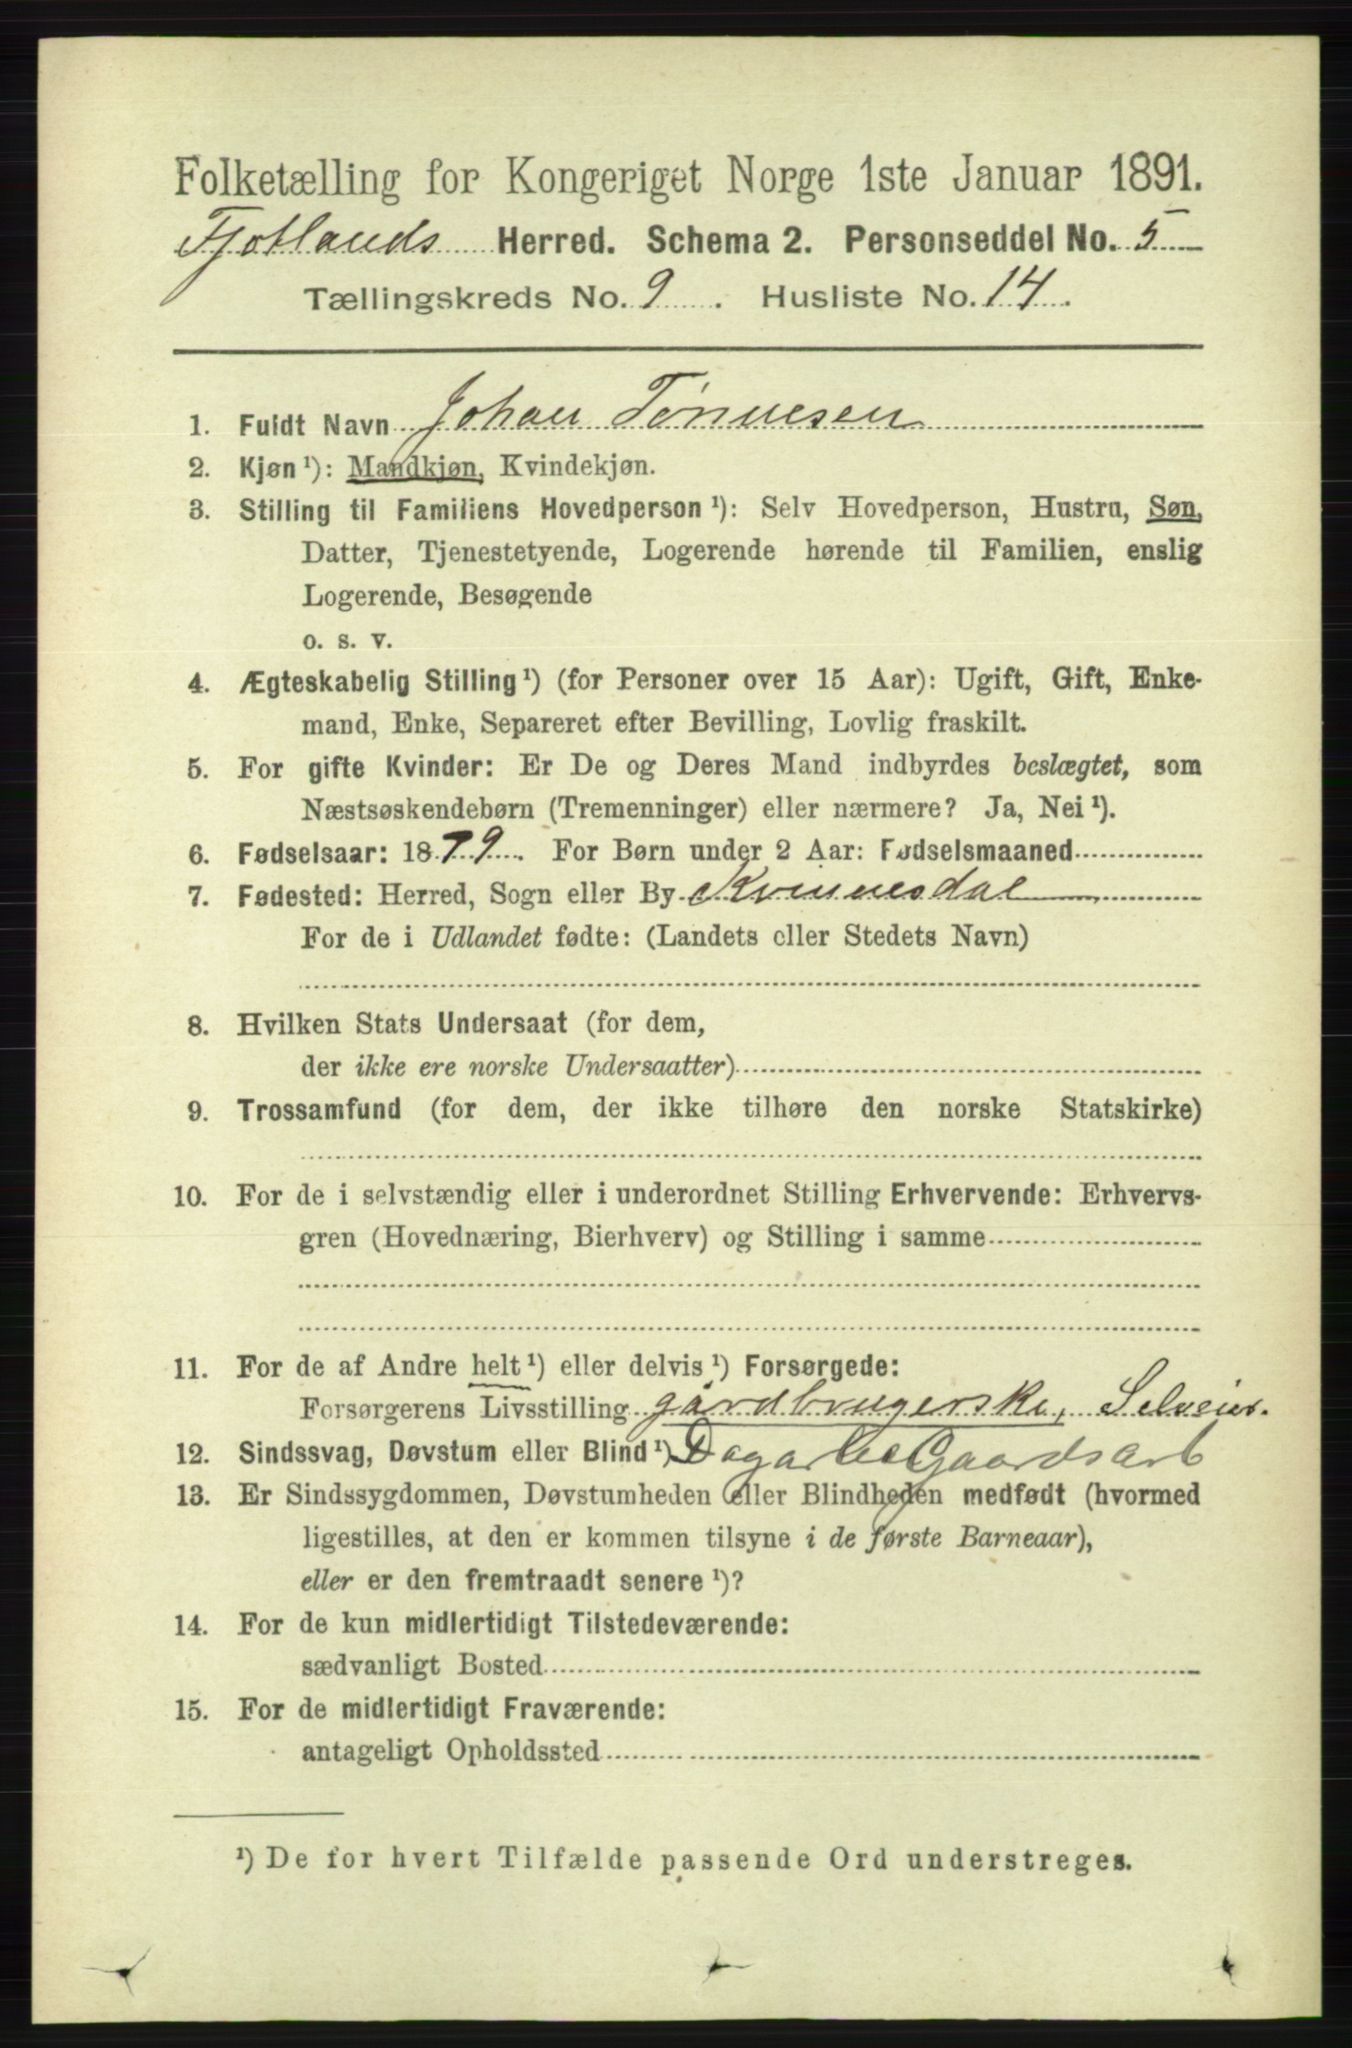 Folketælling for Kongeriget Norge 1ste Januar 1891.
Fjotlands Herred. Schema 2. Personseddel No. 5
Tællingskreds No. 9. Husliste No. 14.
1. Fuldt Navn Johan Tønnesen
2. Kjøn ¹): Mandkjøn, Kvindekjøn.
3. Stilling til Familiens Hovedperson ¹): Selv Hovedperson, Hustru, Søn,
Datter, Tjenestetyende, Logerende hørende til Familien, enslig
Logerende, Besøgende
o. s. v.
4. Ægteskabelig Stilling ¹) (for Personer over 15 Aar): Ugift, Gift, Enke-
mand, Enke, Separeret efter Bevilling, Lovlig fraskilt.
5. For gifte Kvinder: Er De og Deres Mand indbyrdes beslægtet, som
Næstsøskendebørn (Tremenninger) eller nærmere? Ja, Nei ¹).
6. Fødselsaar: 1879. For Børn under 2 Aar: Fødselsmaaned
7. Fødested: Herred, Sogn eller By Kvinnesdal
For de i Udlandet fødte: (Landets eller Stedets Navn)
8. Hvilken Stats Undersaat (for dem,
der ikke ere norske Undersaatter)
9. Trossamfund (for dem, der ikke tilhøre den norske Statskirke)
10. For de i selvstændig eller i underordnet Stilling Erhvervende: Erhvervs-
gren (Hovednæring, Bierhverv) og Stilling i samme
11. For de af Andre helt ¹) eller delvis ¹) Forsørgede:
Forsørgerens Livsstilling gårdbrugerske, Selveier.
12. Sindssvag, Døvstum eller Blind ¹) Gaardsarb
13. Er Sindssygdommen, Døvstumheden eller Blindheden medfødt (hvormed
ligestilles, at den er kommen tilsyne i de første Barneaar),
eller er den fremtraadt senere ¹)?
14. For de kun midlertidigt Tilstedeværende:
sædvanligt Bosted
15. For de midlertidigt Fraværende:
antageligt Opholdssted
¹) De for hvert Tilfælde passende Ord understreges.